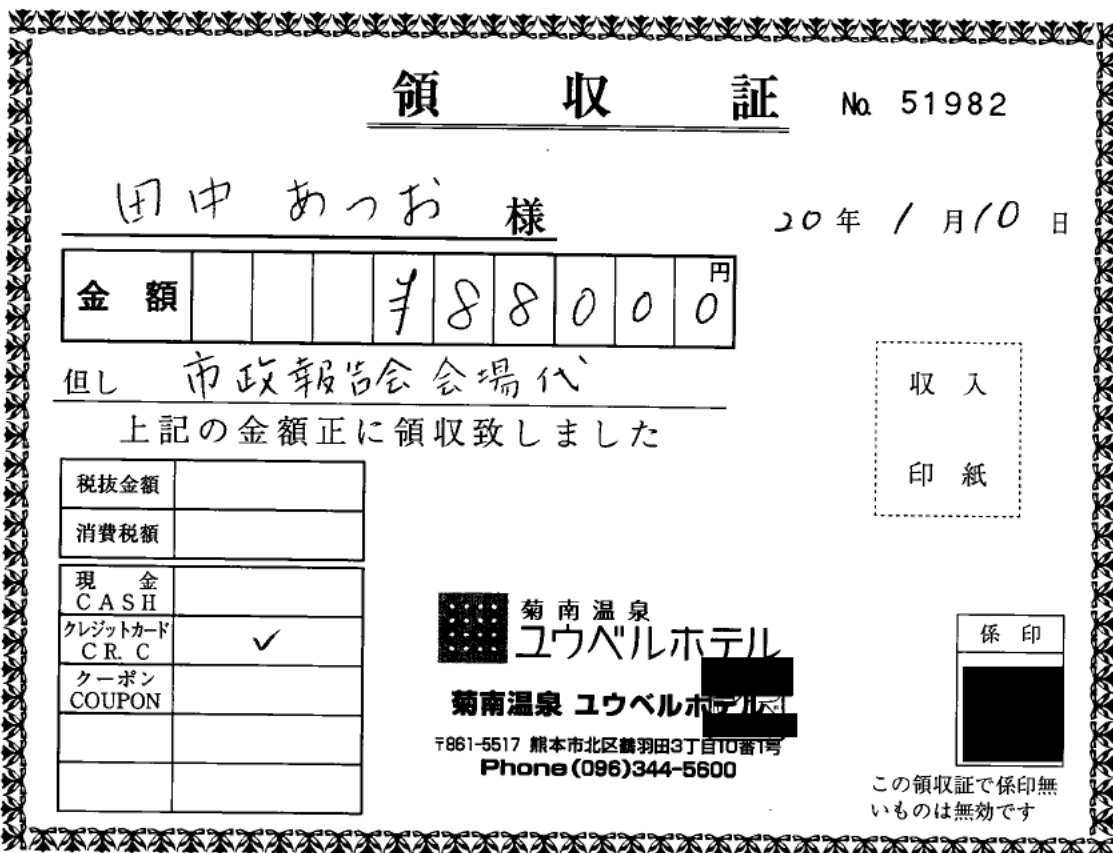 領収証 No. 51982
田中 あつお 様
20年 1月10日
金額 ¥88000円
但し 市政報告会会場代
上記の金額正に領収致しました
収入
印紙
税抜金額
消費税額
現金
CASH
クレジットカード ✓
CR. C
クーポン
COUPON
菊南温泉
ユウベルホテル
菊南温泉 ユウベルホテル
〒861-5517 熊本市北区鶴羽田3丁目10番1号
Phone(096)344-5600
係印
この領収証で係印無
いものは無効です